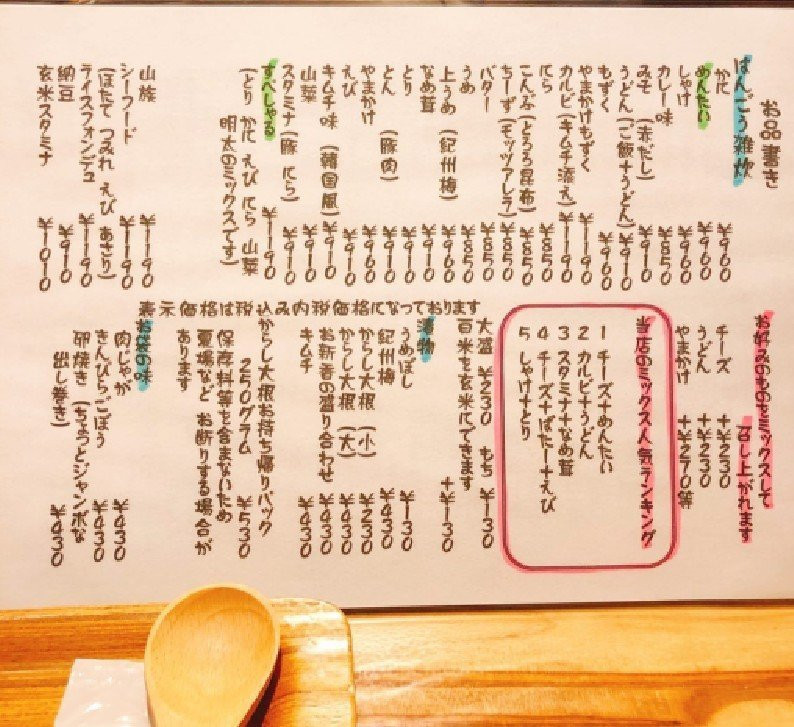 お品書き
はんごう雑炊
かに ¥960
めんたい ¥960
しゃけ ¥960
カレー味 ¥850
みそ(赤だし) ¥910
うどん(ご飯+うどん) ¥910
もずく ¥960
やまかけもずく ¥1190
カルビ(キムチ添え) ¥1190
にら ¥850
こんぶ(とろろ昆布) ¥850
ちーず(モッツアレラ) ¥850
バター ¥850
うめ ¥850
上うめ(紀州梅) ¥910
なめ茸 ¥910
とり ¥910
とん(豚肉) ¥910
やまかけ ¥910
えび ¥960
キムチ味(韓国風) ¥910
山菜 ¥910
スタミナ(豚 にら) ¥910
すぺしゃる ¥1190
(とり かに えび にら 山菜
明太のミックスです)
山族 ¥1190
シーフード ¥1190
(ほたて つみれ えび あさり)
ライスフォンデュ ¥1190
納豆 ¥910
玄米スタミナ ¥1010
お好みのものをミックスして
召し上がれます
チーズ +¥230
うどん +¥230
やまかけ +¥270等
当店のミックス人気ランキング
1 チーズ+めんたい
2 カルビ+うどん
3 スタミナ+なめ茸
4 チーズ+ばたー+えび
5 しゃけ+とり
大盛 ¥230 もち ¥130
白米を玄米にできます +¥130
表示価格は税込み内税価格になっております
漬物
うめぼし ¥130
紀州梅 ¥430
からし大根(小) ¥230
からし大根(大) ¥430
お新香の盛り合わせ ¥430
キムチ ¥430
からし大根お持ち帰りパック
250グラム ¥530
保存料等を含まないため
夏場など お断りする場合が
あります
お袋の味
肉じゃが ¥430
きんぴらごぼう ¥430
卵焼き(ちょっとジャンボな
出し巻き) ¥430